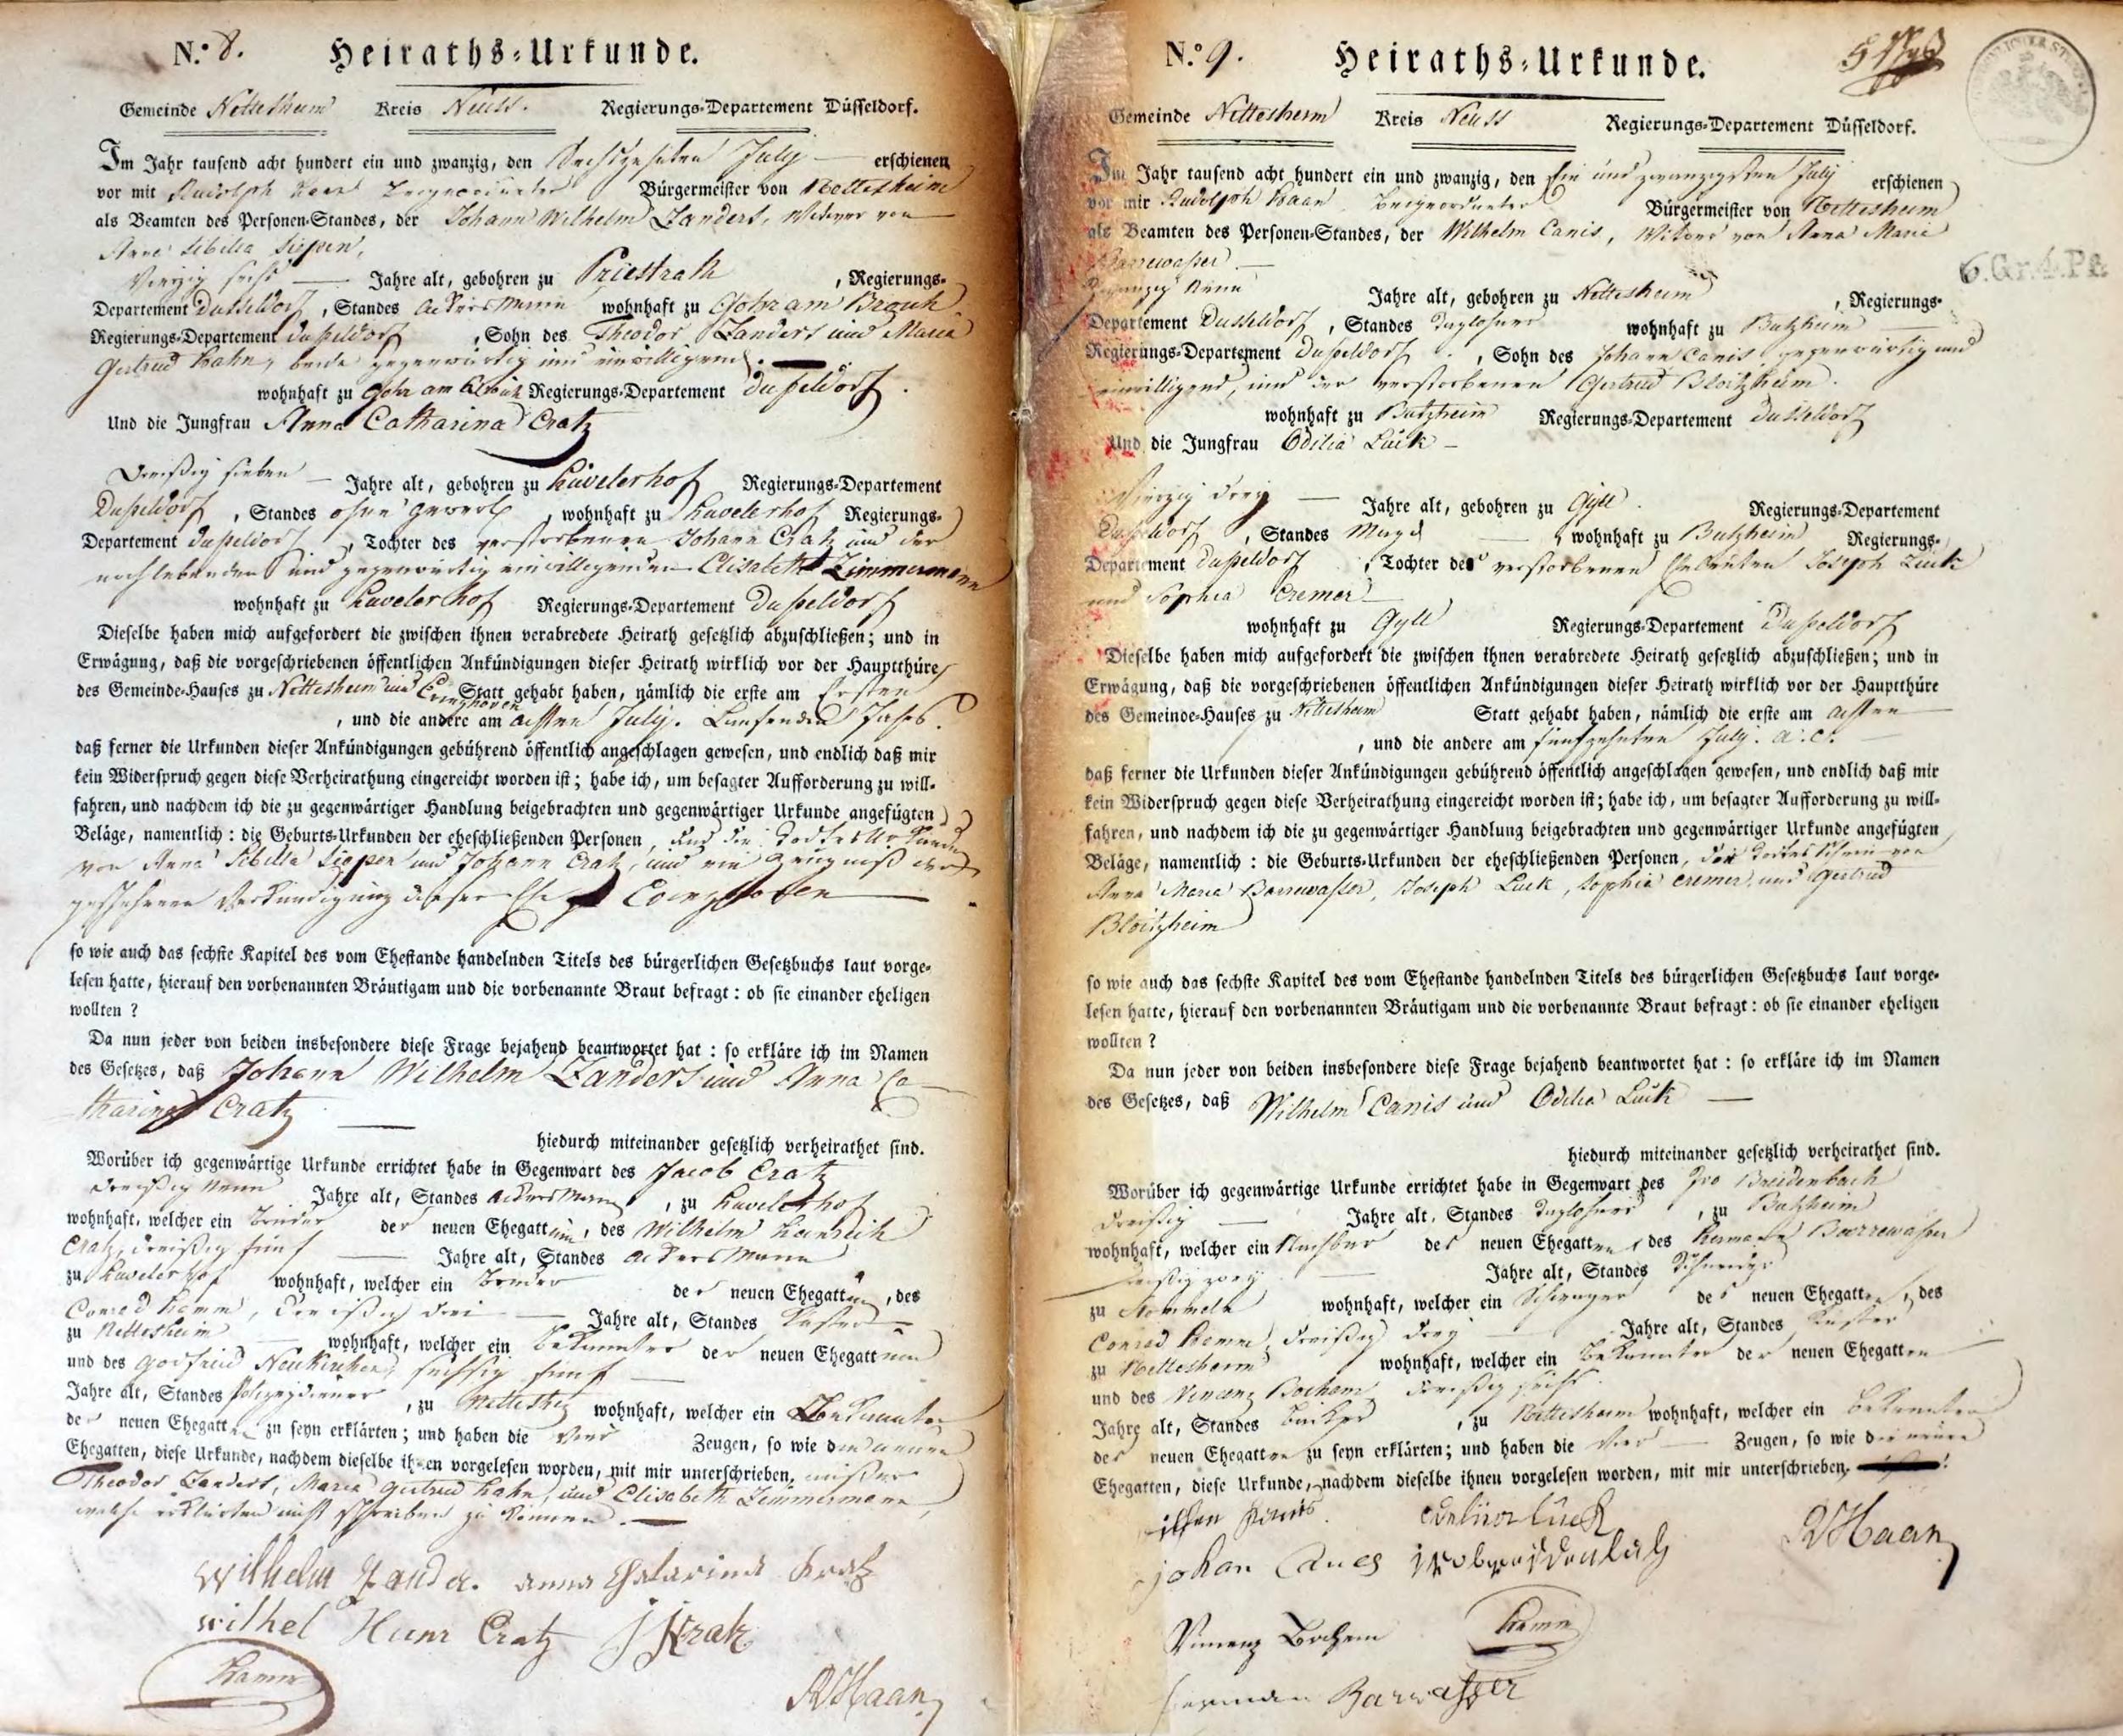 N.º 8. Heiraths-Urkunde.
Gemeinde Nettesheim Kreis Neuss. Regierungs-Departement Düsseldorf.
Im Jahr tausend acht hundert ein und zwanzig, den Sechszehnten July erschienen
vor mit Rudolph Haan Beigeordneter Bürgermeister von Nettesheim
als Beamten des Personen-Standes, der Johann Wilhelm Zanders, Witwer von
Anna Sibilla Siepen,
Vierzig sechs Jahre alt, gebohren zu Priestrath, Regierungs-
Departement Dusseldorf, Standes Ackersmann wohnhaft zu Gohr am Brouh
Regierungs-Departement Dusseldorf, Sohn des Theodor Zanders und Maria
Gertrud Hahn, beide gegenwärtig und einwilligend.
wohnhaft zu Gohr am Brouh Regierungs-Departement Dusseldorf.
Und die Jungfrau Anna Catharina Cratz
Dreißig sieben Jahre alt, gebohren zu Haveler hof Regierungs-Departement
Dusseldorf, Standes ohne Gewerb, wohnhaft zu Haveler hof Regierungs-
Departement Dusseldorf, Tochter des verstorbenen Johann Cratz und der
noch lebenden und gegenwärtig einwilligenden Elisabeth Zimmermann
wohnhaft zu Haveler hof Regierungs-Departement Dusseldorf
Dieselbe haben mich aufgefordert die zwischen ihnen verabredete Heirath gesetzlich abzuschließen; und in
Erwägung, daß die vorgeschriebenen öffentlichen Ankündigungen dieser Heirath wirklich vor der Hauptthüre
des Gemeinde-Hauses zu Nettesheim und Evinghoven Statt gehabt haben, nämlich die erste am Ersten
, und die andere am achten July. Laufenden Jahrs.
daß ferner die Urkunden dieser Ankündigungen gebührend öffentlich angeschlagen gewesen, und endlich daß mir
kein Widerspruch gegen diese Verheirathung eingereicht worden ist; habe ich, um besagter Aufforderung zu will-
fahren, und nachdem ich die zu gegenwärtiger Handlung beigebrachten und gegenwärtiger Urkunde angefügten
Beläge, namentlich: die Geburts-Urkunden der eheschließenden Personen, und die Todtes Urkunde
von Anna Sibilla Siepen und Johann Cratz, und ein Zeugniß der
geschehenen Verkündigung dieser Ehe zu Evinghoven
so wie auch das sechste Kapitel des vom Ehestande handelnden Titels des bürgerlichen Gesetzbuchs laut vorge-
lesen hatte, hierauf den vorbenannten Bräutigam und die vorbenannte Braut befragt: ob sie einander eheligen
wollten?
Da nun jeder von beiden insbesondere diese Frage bejahend beantwortet hat: so erkläre ich im Namen
des Gesetzes, daß Johann Wilhelm Zanders und Anna Ca-
tharina Cratz
hiedurch miteinander gesetzlich verheirathet sind.
Worüber ich gegenwärtige Urkunde errichtet habe in Gegenwart des Jacob Cratz
Dreißig Neun Jahre alt, Standes Ackersmann, zu Haveler hof
wohnhaft, welcher ein Bruder der neuen Ehegattin, des Wilhelm Heinrich
Cratz, dreißig fünf Jahre alt, Standes Ackersmann
zu Haveler hof wohnhaft, welcher ein Bruder der neuen Ehegattin, des
Conrad Hamm, dreißig drei Jahre alt, Standes Küster
zu Nettesheim wohnhaft, welcher ein Bekannter der neuen Ehegatten
und des Godfried Neukirchen, sechsig fünf
Jahre alt, Standes Polizeydiener, zu Nettesheim wohnhaft, welcher ein Bekannter
der neuen Ehegatten zu seyn erklärten; und haben die vier Zeugen, so wie die neuen
Ehegatten, diese Urkunde, nachdem dieselbe ihnen vorgelesen worden, mit mir unterschrieben, außer
Theodor Zanders, Maria Gertrud Hahn, und Elisabeth Zimmermann,
welche erklärten nicht schreiben zu können.
Wilhelm Zander. Anna Chatarina Kratz
Wilhel Henr Cratz J Kratz
Hamm
R Haan
N.º 9. Heiraths-Urkunde.
Gemeinde Nettesheim Kreis Neuss Regierungs-Departement Düsseldorf.
6.Gr.4.Pf.
Im Jahr tausend acht hundert ein und zwanzig, den Ein und zwanzigsten July erschienen
vor mir Rudolph Haan Beigeordneter Bürgermeister von Nettesheim
als Beamten des Personen-Standes, der Wilhelm Canis, Witwer von Anna Maria
Barrewasser.
Zwanzig Neun Jahre alt, gebohren zu Nettesheim, Regierungs-
Departement Dusseldorf, Standes Taglohner wohnhaft zu Butzheim
Regierungs-Departement Dusseldorf, Sohn des Johann Canis gegenwärtig und
einwilligend, und der verstorbenen Gertrud Bloitzheim.
wohnhaft zu Butzheim Regierungs-Departement Dusseldorf
Und die Jungfrau Odilia Lück
Vierzig drey Jahre alt, gebohren zu Gyll. Regierungs-Departement
Dusseldorf, Standes Magd wohnhaft zu Butzheim Regierungs-
Departement Dusseldorf, Tochter der verstorbenen Eheleuten Joseph Lück
und Sophia Cremer
wohnhaft zu Gyll Regierungs-Departement Dusseldorf
Dieselbe haben mich aufgefordert die zwischen ihnen verabredete Heirath gesetzlich abzuschließen; und in
Erwägung, daß die vorgeschriebenen öffentlichen Ankündigungen dieser Heirath wirklich vor der Hauptthüre
des Gemeinde-Hauses zu Nettesheim Statt gehabt haben, nämlich die erste am achten
, und die andere am fünfzehnten July. a. c.
daß ferner die Urkunden dieser Ankündigungen gebührend öffentlich angeschlagen gewesen, und endlich daß mir
kein Widerspruch gegen diese Verheirathung eingereicht worden ist; habe ich, um besagter Aufforderung zu will-
fahren, und nachdem ich die zu gegenwärtiger Handlung beigebrachten und gegenwärtiger Urkunde angefügten
Beläge, namentlich: die Geburts-Urkunden der eheschließenden Personen, der Todtes Schein von
Anna Maria Barrewasser, Joseph Luck, Sophia Cremer und Gertrud
Bloitzheim
so wie auch das sechste Kapitel des vom Ehestande handelnden Titels des bürgerlichen Gesetzbuchs laut vorge-
lesen hatte, hierauf den vorbenannten Bräutigam und die vorbenannte Braut befragt: ob sie einander eheligen
wollten?
Da nun jeder von beiden insbesondere diese Frage bejahend beantwortet hat: so erkläre ich im Namen
des Gesetzes, daß Wilhelm Canis und Odilia Lück
hiedurch miteinander gesetzlich verheirathet sind.
Worüber ich gegenwärtige Urkunde errichtet habe in Gegenwart des Ivo Breidenbach
dreißig Jahre alt, Standes Taglohner, zu Butzheim
wohnhaft, welcher ein Nachbar der neuen Ehegatten, des Hermann Barrewasser
dreißig zwey Jahre alt, Standes Schneider
zu Stommeln wohnhaft, welcher ein Schwager des neuen Ehegatten, des
Conrad Hamm, dreißig drey Jahre alt, Standes Küster
zu Nettesheim wohnhaft, welcher ein Bekannter der neuen Ehegatten
und des Vincenz Bochem dreißig sechs.
Jahre alt, Standes Bäcker, zu Nettesheim wohnhaft, welcher ein Bekannter
der neuen Ehegatten zu seyn erklärten; und haben die vier Zeugen, so wie die neuen
Ehegatten, diese Urkunde, nachdem dieselbe ihnen vorgelesen worden, mit mir unterschrieben.
R Haan
Vinzenz Bochem Hamm
Herman Barwasser